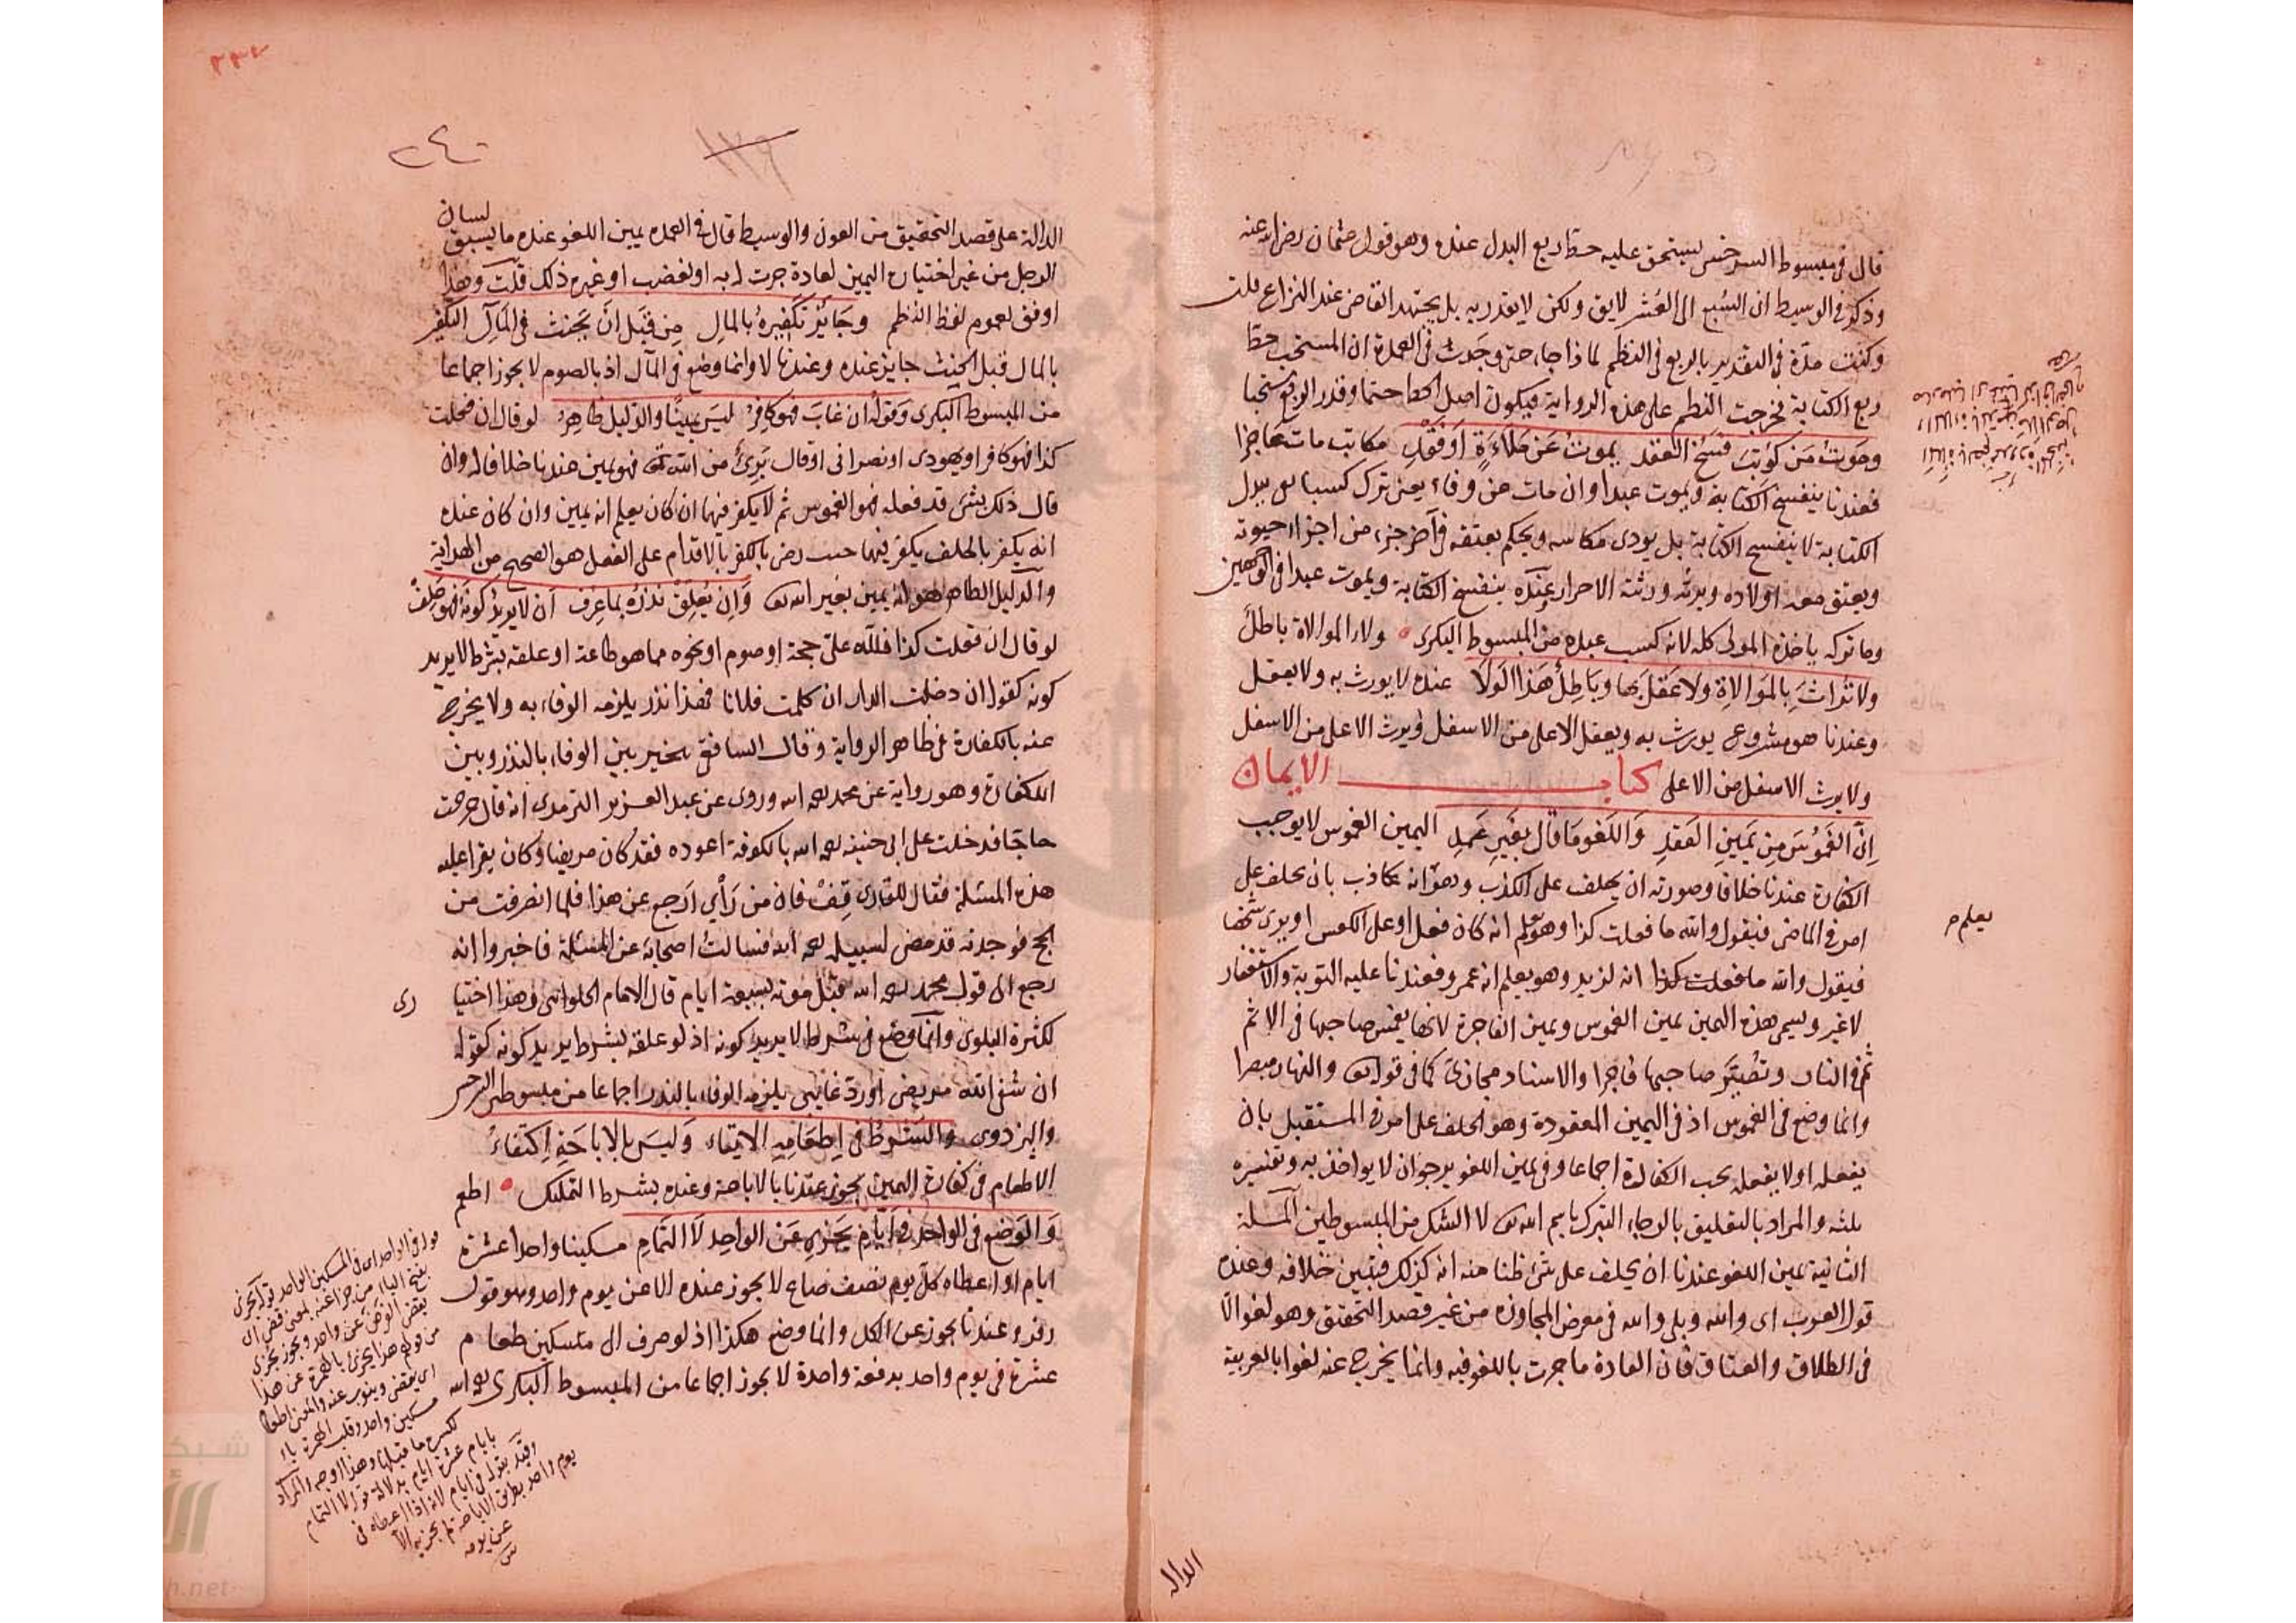 قال في مبسوط السرخسي يستحق عليه حط ربع البدل عنده وهو قول عثمان رضي الله عنه
وذكر في الوسيط ان السبع الى العشر لايق ولكن لا يقدر به بل يجتهد القاضي عند النزاع قلت
وكنت مدة في التقدير بالربع في النظم لماذا جاء حتى وجدت في العمدة ان المستحب حط
ربع الكتابة فخرجت النظم على هذه الرواية فيكون اصل الحط حتما وقدر الربع مستحبا
وموت من كوتب فسخ العقد يموت عن ملاءة او فقد مكاتب مات عاجزا
فعندنا ينفسخ الكتابة ويموت عبدا وان مات عن وفاء يعني ترك كسبا يبدل
الكتابة لا ينفسخ الكتابة بل يودى مكاسبه ويحكم بعتقه في آخر جزء من اجزاء حيوته
ويعتق معه اولاده ويرثه ورثته الاحرار وعنده ينفسخ الكتابة ويموت عبدا في الوجهين
وما تركه ياخذه المولى كله لانه كسب عبده من المبسوط البكرى ولاء الموالاة باطل
ولا تراث بالموالاة ولا عقل بها وباطل هذا الولا عنده لا يورث به ولا يعقل
وعندنا هو مشروع يورث به ويعقل الاعلى من الاسفل ويرث الاعلى من الاسفل
ولا يرث الاسفل من الاعلى كتاب الايمان
ان الغموس من يمين العقد واللغو ما قال بغير عمد اليمين الغموس لا يوجب
الكفارة عندنا خلافا وصورته ان يحلف على الكذب وهو انه كاذب بان يحلف على
امر في الماضي فيقول والله ما فعلت كذا وهو يعلم انه كان فعل او على العكس او يرى شخصا
فيقول والله ما فعلت كذا انه لزيد وهو يعلم انه عمرو فعندنا عليه التوبة والاستغفار
لا غير ويسمى هذه اليمين يمين الغموس ويمين الفاجرة لانها يغمس صاحبها في الاثم
ثم في النار وتصير صاحبها فاجرا والاسناد مجازى كما في قوله تعالى والنهار مبصرا
وانما وضع في الغموس اذ في اليمين المعقودة وهو الحلف على امر في المستقبل بان
يفعله او لا يفعله يجب الكفارة اجماعا وفي يمين اللغو يرجو ان لا يواخذ به وتفسيره
يثلثه والمراد بالتعليق بالرجاء التبرك باسم الله تعالى لا الشك من المبسوطين المسئلة
الثانية يمين اللغو عندنا ان يحلف على شئ ظنا منه انه كذلك فتبين خلافه وعنده
قول العرب اى والله وبلى والله في معرض المجاوزة من غير قصد التحقيق وهو لغو الا
في الطلاق والعتاق فان العادة ما جرت باللغو فيه وانما يخرج عنه لغوا بالعربية
يعلم م
الدالة
٢٤٠
الدالة على قصد التحقيق من العون والوسيط قال في العمدة يمين اللغو عنده ما يسبق لسان
الرجل من غير اختيار اليمين لعادة جرت له به او لغضب او غير ذلك قلت وهذا
اوفق لعموم لفظ النظم وجائز تكفيره بالمال من قبل ان يحنث في المآل التكفير
بالمال قبل الحنث جايز عنده وعندنا لا وانما وضع في المال اذ بالصوم لا يجوز اجماعا
من المبسوط البكرى وقوله ان غاب فهو كافر ليس يمينا والدليل ظاهر لو قال ان فعلت
كذا فهو كافر او يهودى او نصرانى او قال برئ من الله تعالى فهو يمين عندنا خلافا له وان
قال ذلك بشئ قد فعله فهو الغموس ثم لا يكفر فيها ان كان يعلم انه يمين وان كان عنده
انه يكفر بالحلف يكفر فيهما حيث رضى بالكفر بالاقدام على الفعل هو الصحيح من الهداية
والدليل الظاهر هو انه يمين بغير الله تعالى وان يعلق نذره بما عرف ان لا يريد كونه فهو حلف
لو قال ان فعلت كذا فلله على حجة او صوم او نحوه مما هو طاعة او علقه بشرط لا يريد
كونه كقوله ان دخلت الدار ان كلمت فلانا فهذا نذر يلزمه الوفاء به ولا يخرج
عنه بالكفارة في ظاهر الرواية وقال الشافعى يتخير بين الوفاء بالنذر وبين
الكفارة وهو رواية عن محمد رحمه الله وروى عن عبد العزيز الترمذى انه قال خرجت
حاجا فدخلت على ابى حنيفة رحمه الله بالكوفة اعوده فقد كان مريضا وكان يقرا عليه
هذه المسئلة فقال للقارى قف فان من رأي ارجع عن هذا فلما انصرفت من
الحج فوجدته قد مضى لسبيله رحمه الله فسالت اصحابه عن المسئلة فاخبروا انه
رجع الى قول محمد رحمه الله قبل موته بسبعة ايام قال الامام الحلوانى وهذا اختيا
رى
لكثرة البلوى وانما وضع في شرط لا يريد كونه اذ لو علقه بشرط يريد كونه كقوله
ان شفى الله مريضى او رد غايبى يلزمه الوفاء بالنذر اجماعا من مبسوطى السرخسى
والبزدوى والشرط في اطعامه الايتاء وليس بالاباحة اكتفاء
الاطعام في كفارة اليمين يجوز عندنا بالاباحة وعنده بشرط التمليك اطعم
والوضع في الواحد في ايام يجزى عن الواحد لا التمام مسكينا واحدا عشرة
ايام او اعطاه كل يوم نصف صاع لا يجوز عنده الا عن يوم واحد وهو قول
زفر وعندنا يجوز عن الكل وانما وضع هكذا اذ لو صرف الى مسكين طعام
عشرة في يوم واحد بدفعة واحدة لا يجوز اجماعا من المبسوط البكرى رحمه الله
يوم واحد بطريق الاباحة لم يجزيه الا
عن يومه